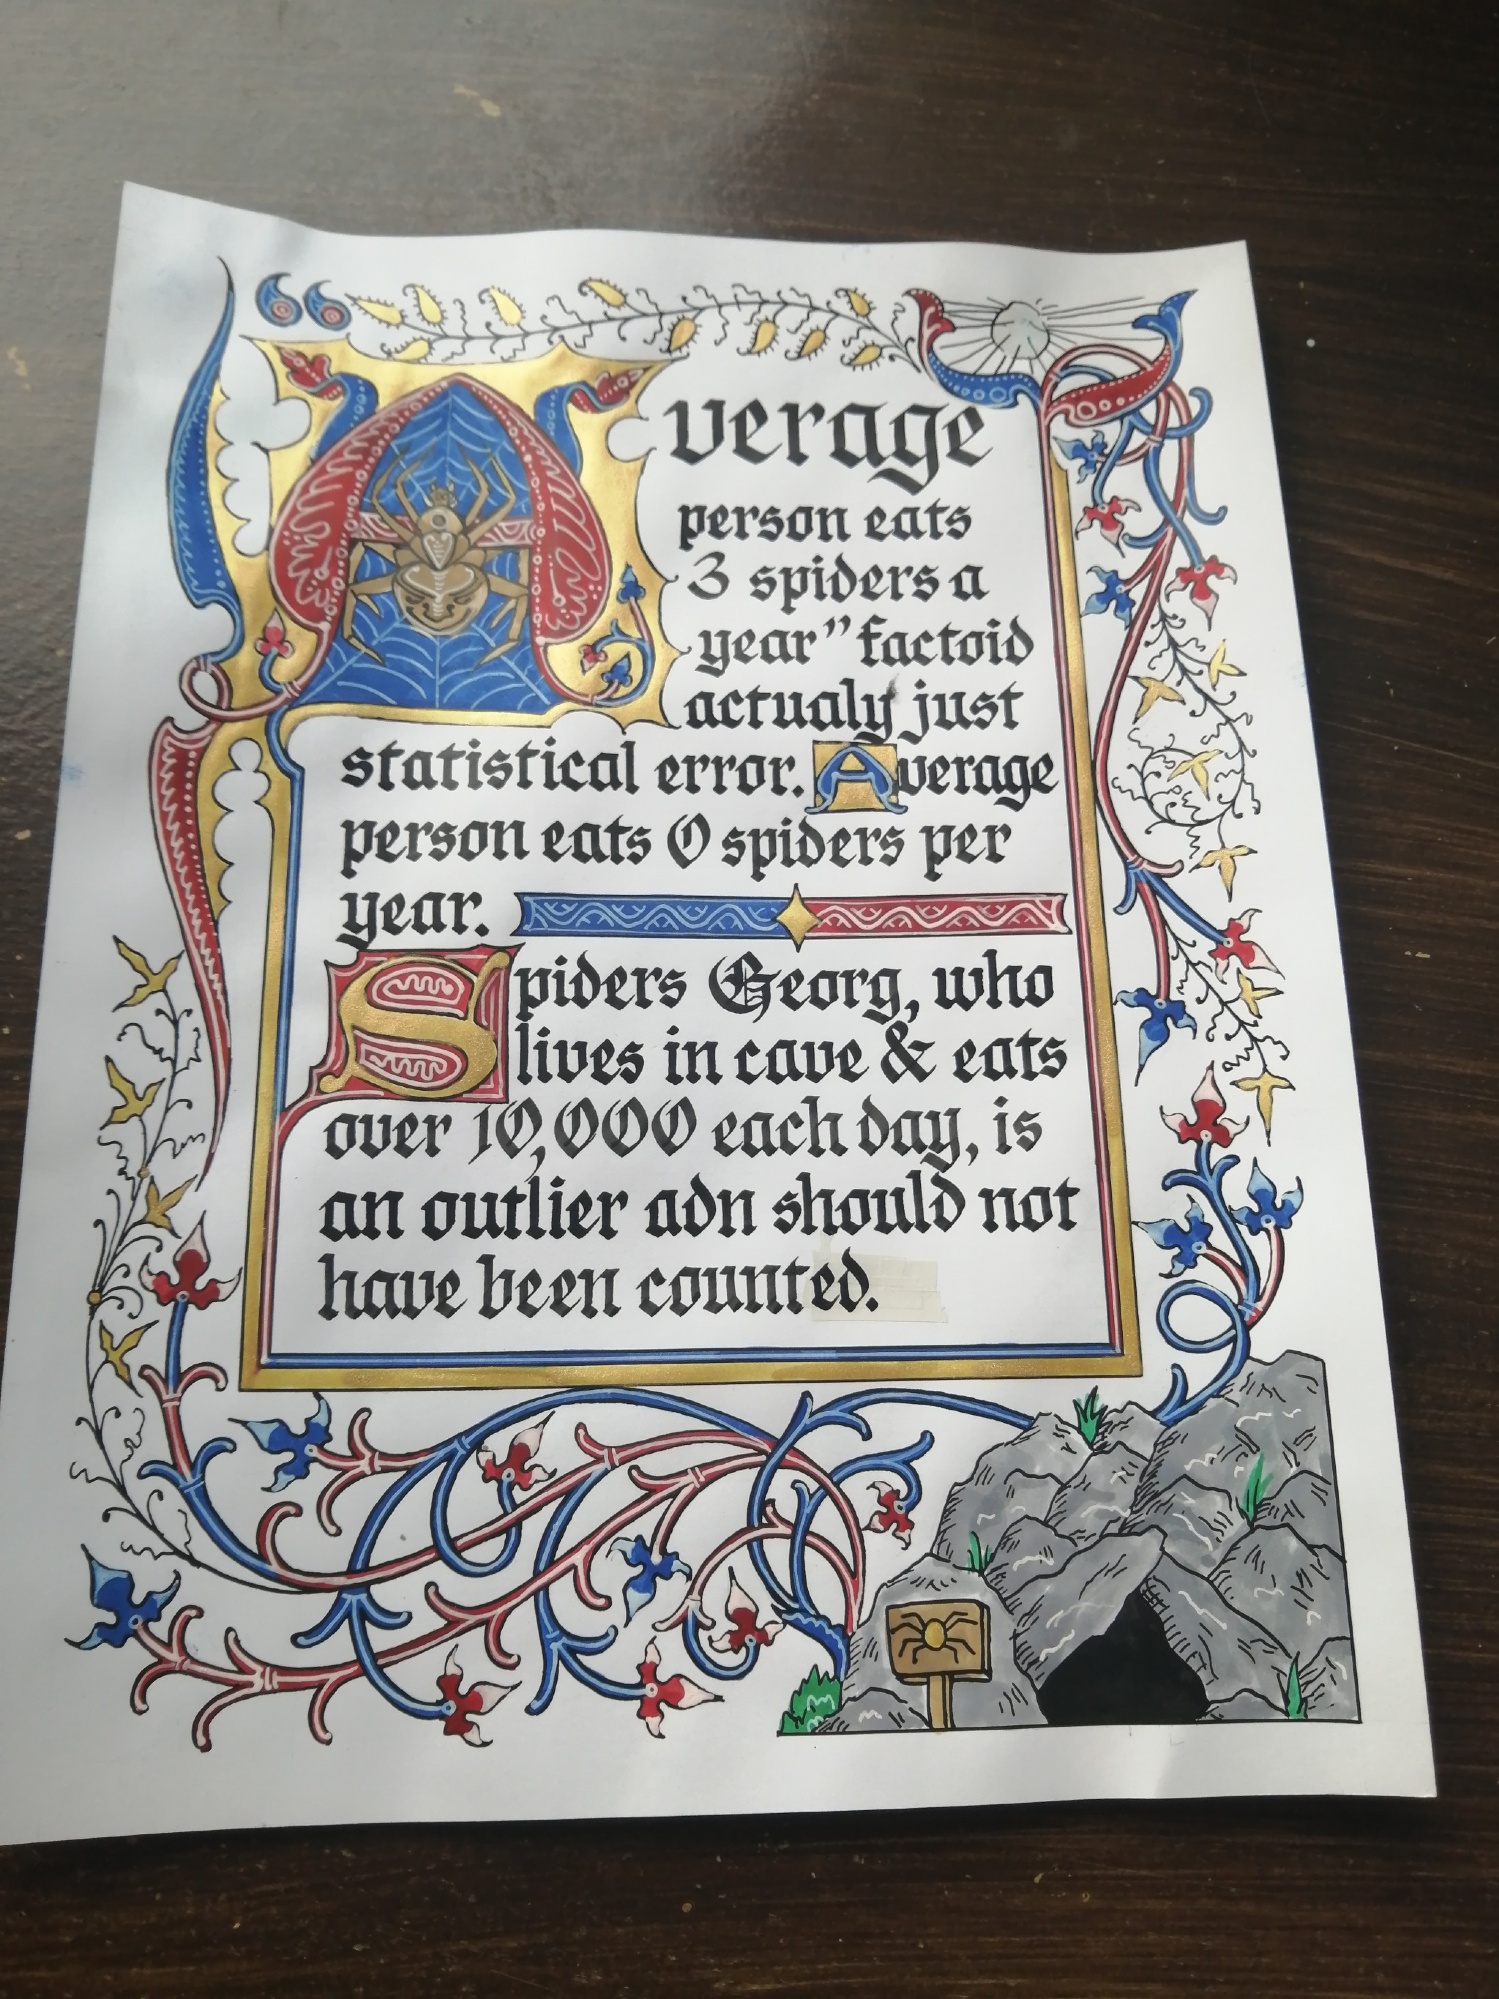 “Average
person eats
3 spiders a
year” factoid
actualy just
statistical error. Average
person eats 0 spiders per
year.
Spiders Georg, who
lives in cave & eats
over 10,000 each day, is
an outlier adn should not
have been counted.